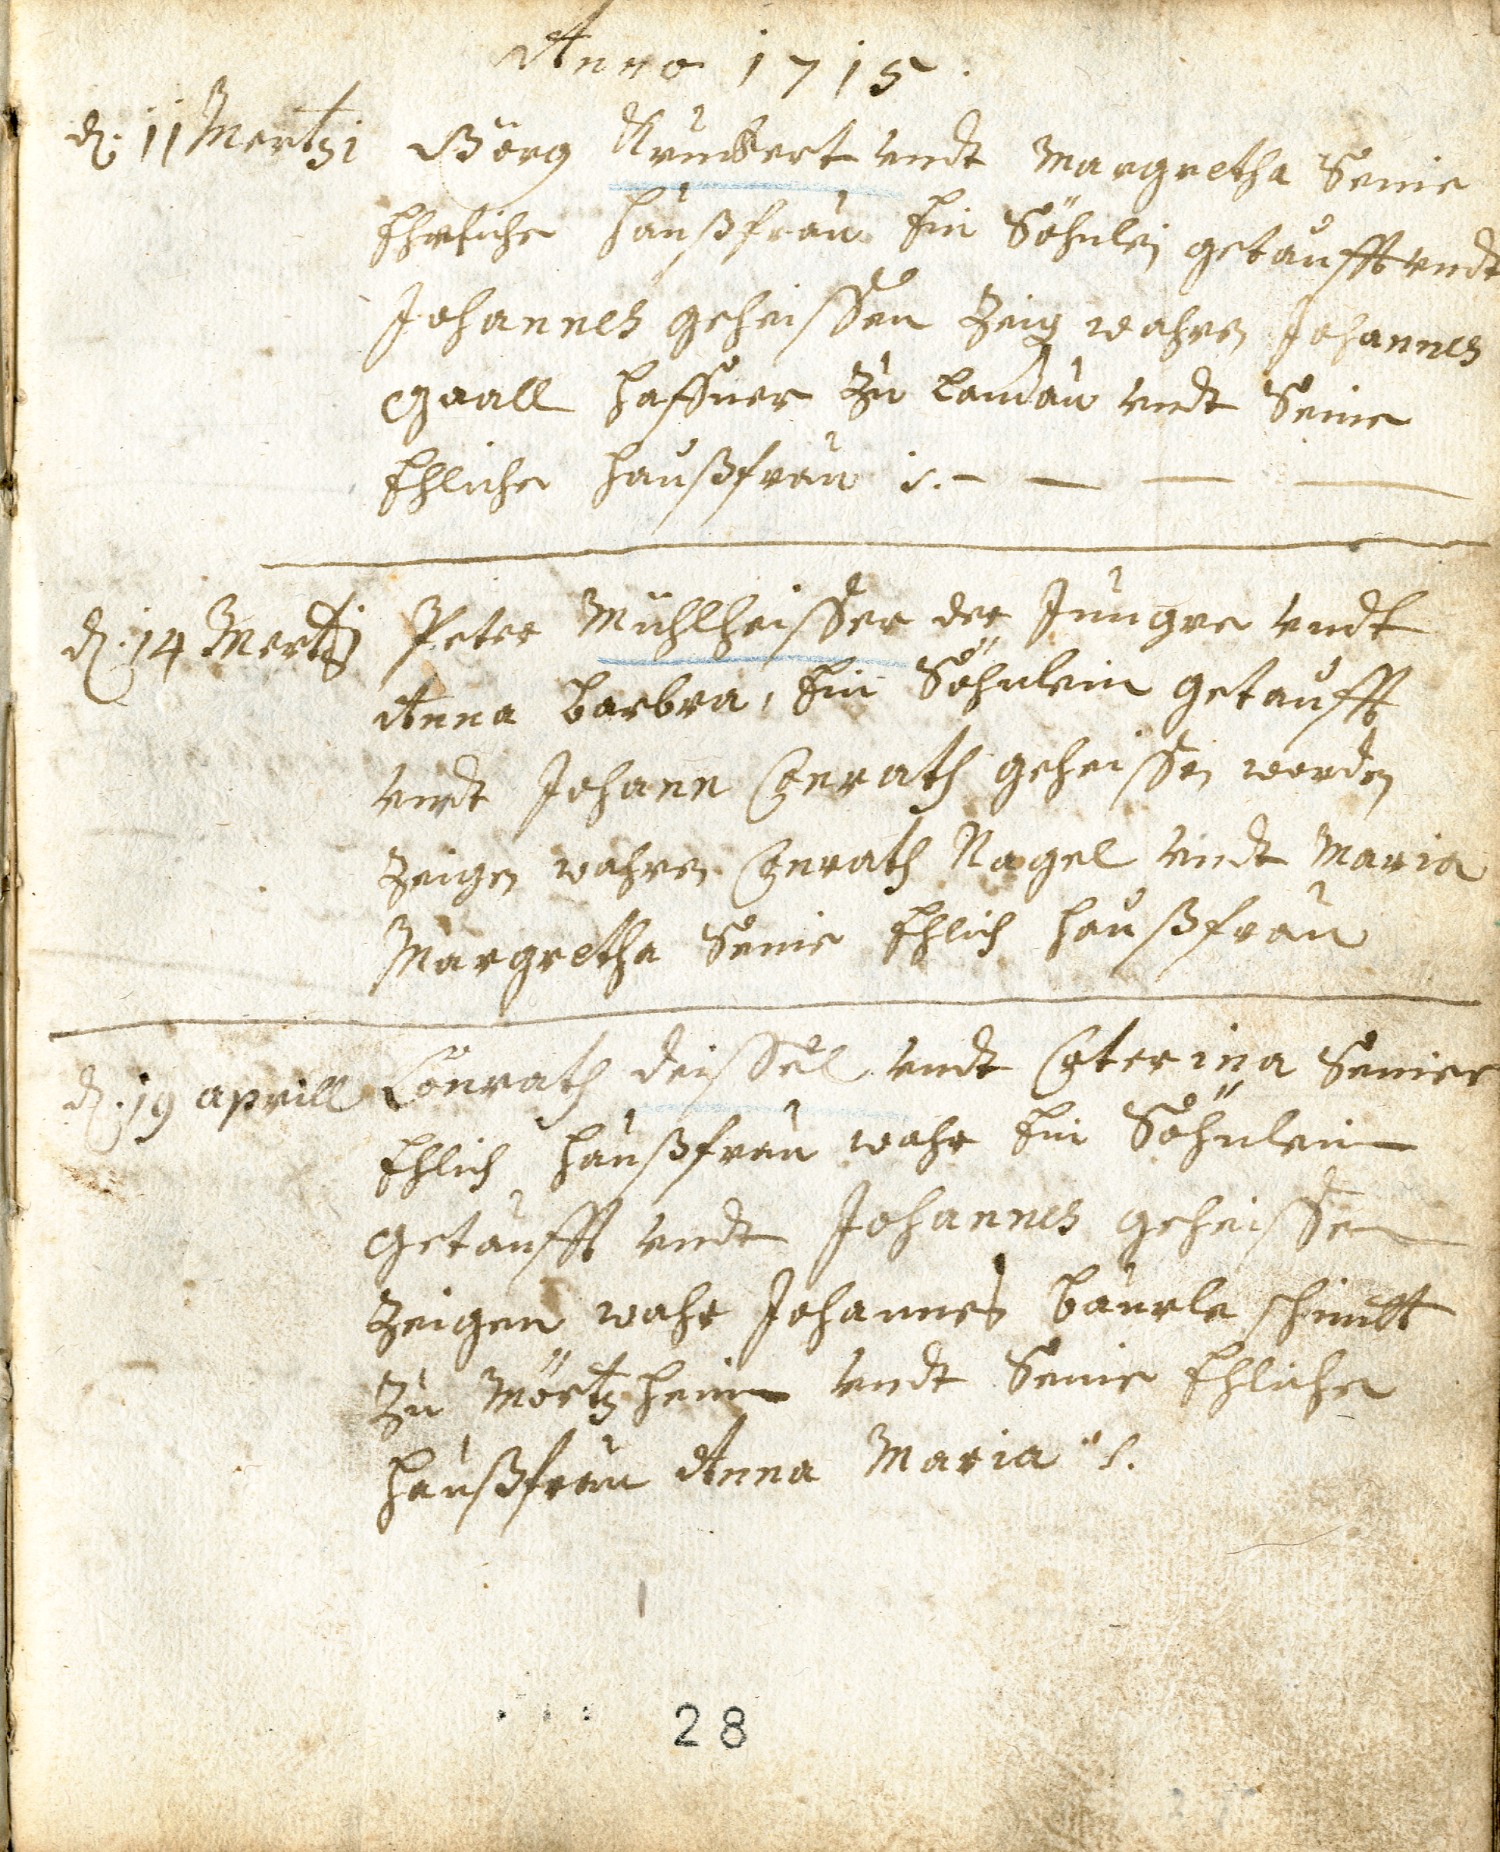 Anno 1715.
d. 11 Mertzi Görg Krumbert vndt Margretha Seine
Ehrliche haußfrau Ein Söhnlej getaufft vndt
Johannes geheissen Zeig wahren Johannes
Graall haffner Zu Landau vndt Seine
Ehliche haußfrau
d. 14 Mertzj Peter Mühlheisser der Jungre vndt
Anna barbra, Ein Söhnlein getaufft
vndt Johann Conrath geheissen worden
Zeigen wahren Conrath Nagel vndt Maria
Margretha Seine Ehlich haußfrau
d. 19 aprill Conrath deissel vndt Caterina Seiner
Ehlich haußfrau wahr Ein Söhnlein
getaufft vndt Johannes geheissen
Zeigen wahr Johannes bäurle schmitt
Zu Mörtzheim vndt Seine Ehliche
haußfrau Anna Maria
28